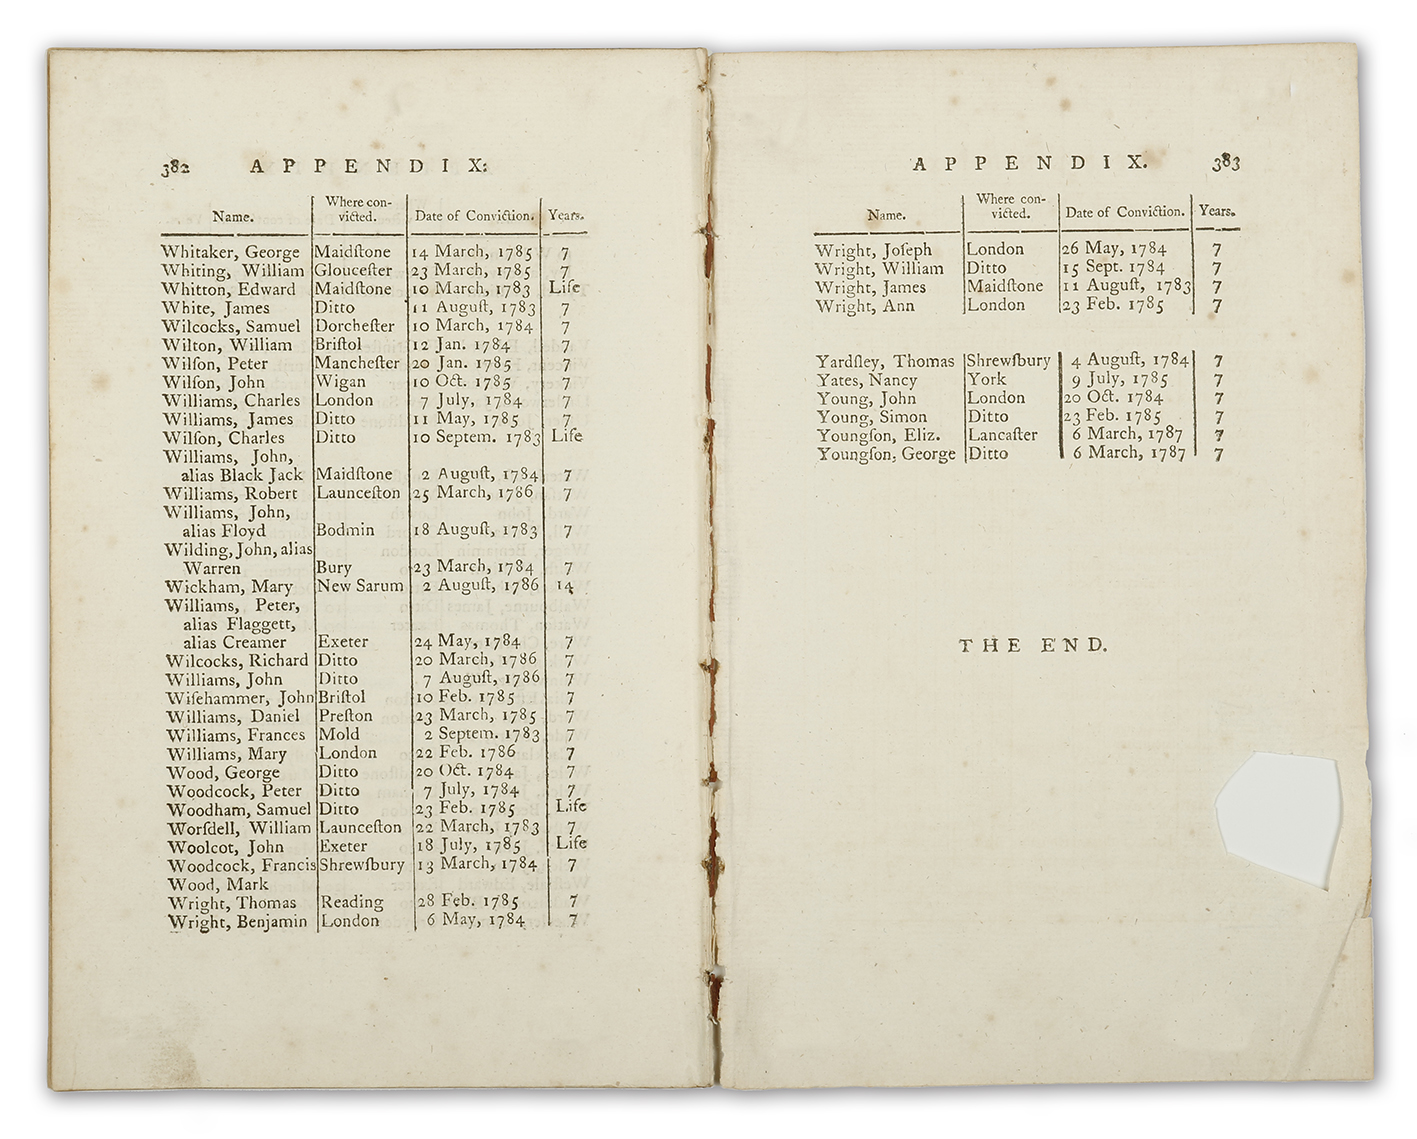 382 APPENDIX:
Name. Where con-victed. Date of Conviction. Years.
Whitaker, George Maidſtone 14 March, 1785 7
Whiting, William Glouceſter 23 March, 1785 7
Whitton, Edward Maidſtone 10 March, 1783 Life
White, James Ditto 11 Auguſt, 1783 7
Wilcocks, Samuel Dorcheſter 10 March, 1784 7
Wilton, William Briſtol 12 Jan. 1784 7
Wilſon, Peter Mancheſter 20 Jan. 1785 7
Wilſon, John Wigan 10 Oct. 1785 7
Williams, Charles London 7 July, 1784 7
Williams, James Ditto 11 May, 1785 7
Wilſon, Charles Ditto 10 Septem. 1783 Life
Williams, John,
alias Black Jack Maidſtone 2 Auguſt, 1784 7
Williams, Robert Launceſton 25 March, 1786 7
Williams, John,
alias Floyd Bodmin 18 Auguſt, 1783 7
Wilding, John, alias
Warren Bury 23 March, 1784 7
Wickham, Mary New Sarum 2 Auguſt, 1786 14
Williams, Peter,
alias Flaggett,
alias Creamer Exeter 24 May, 1784 7
Wilcocks, Richard Ditto 20 March, 1786 7
Williams, John Ditto 7 Auguſt, 1786 7
Wiſehammer, John Briſtol 10 Feb. 1785 7
Williams, Daniel Preſton 23 March, 1785 7
Williams, Frances Mold 2 Septem. 1783 7
Williams, Mary London 22 Feb. 1786 7
Wood, George Ditto 20 Oct. 1784 7
Woodcock, Peter Ditto 7 July, 1784 7
Woodham, Samuel Ditto 23 Feb. 1785 Life
Worſdell, William Launceſton 22 March, 1783 7
Woolcot, John Exeter 18 July, 1785 Life
Woodcock, Francis Shrewſbury 13 March, 1784 7
Wood, Mark
Wright, Thomas Reading 28 Feb. 1785 7
Wright, Benjamin London 6 May, 1784 7
APPENDIX. 383
Name. Where con-victed. Date of Conviction. Years.
Wright, Joſeph London 26 May, 1784 7
Wright, William Ditto 15 Sept. 1784 7
Wright, James Maidſtone 11 Auguſt, 1783 7
Wright, Ann London 23 Feb. 1785 7
Yardſley, Thomas Shrewſbury 4 Auguſt, 1784 7
Yates, Nancy York 9 July, 1785 7
Young, John London 20 Oct. 1784 7
Young, Simon Ditto 23 Feb. 1785 7
Youngſon, Eliz. Lancaſter 6 March, 1787 7
Youngſon, George Ditto 6 March, 1787 7
THE END.